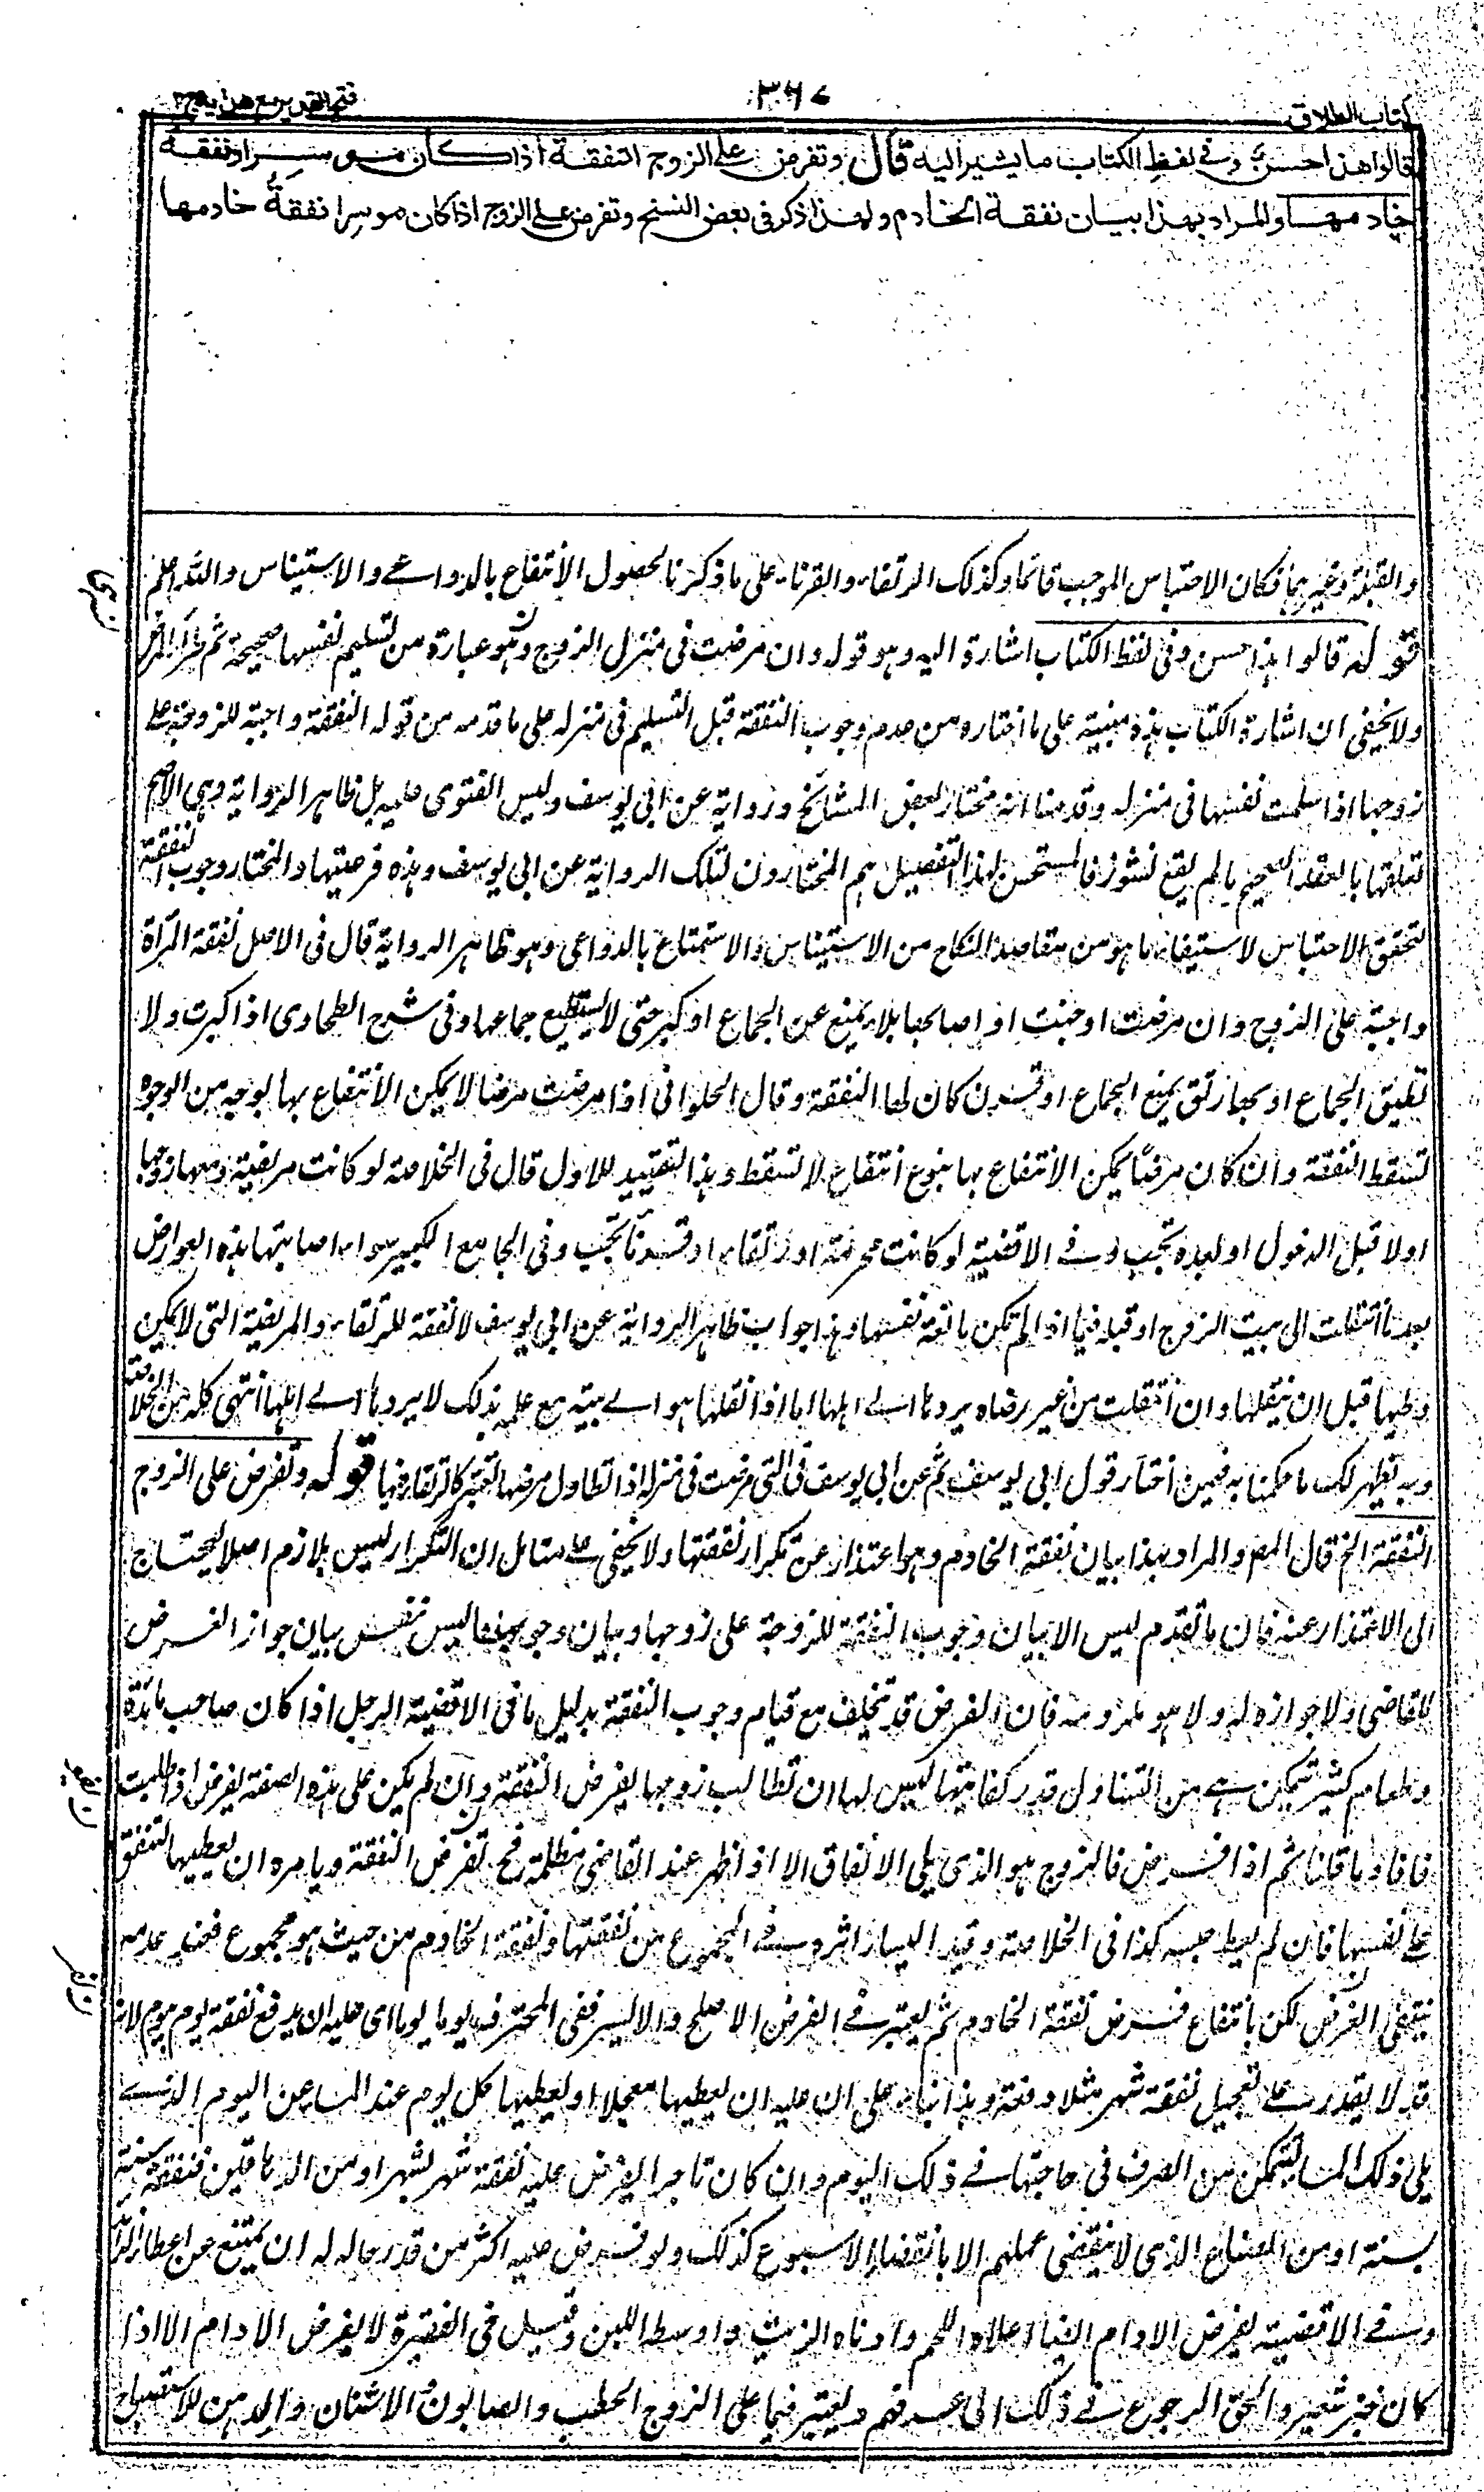 كتاب الطلاق ٣٦٧ فتح القدير مع هدايه ج ٢
قالوا هذا حسن وفى لفظ الكتاب ما يشير اليه قال وتفرض على الزوج النفقة اذا كان موسرا ونفقة
خادمها والمراد بهذا بيان نفقة الخادم ولهذا ذكر فى بعض النسخ وتفرض على الزوج اذا كان موسرا نفقة خادمها
والقبلة وغيرهما فكان الاحتباس الموجب قائما وكذلك الرتقاء والقرناء على ما ذكرنا لحصول الانتفاع بالدواعى والاستيناس والله اعلم
قوله قالوا هذا حسن وفى لفظ الكتاب اشارة اليه وهو قوله وان مرضت فى منزل الزوج فهو عبارة من تسليم نفسها صحيحة ثم طرأ المرض
ولا يخفى ان اشارة الكتاب هذه مبنية على ما اختاره من عدم وجوب النفقة قبل التسليم فى منزله على ما قدمه من قوله النفقة واجبة للزوجة على
زوجها اذا سلمت نفسها فى منزله وقدمنا انه مختار بعض المشائخ ورواية عن ابى يوسف وليس الفتوى عليه بل ظاهر الرواية وهى الاصح
تعلقها بالعقد الصحيح ما لم يقع نشوز فالمستحسن لهذا التفصيل هم المختارون لتلك الرواية عن ابى يوسف وهذه فرعيتها والمختار وجوب النفقة
لتحقق الاحتباس لاستيفاء ما هو من مقاصد النكاح من الاستيناس والاستمتاع بالدواعى وهو ظاهر الرواية قال فى الاصل نفقة المرأة
واجبة على الزوج وان مرضت او جنت او اصابها بلاء يمنع عن الجماع او كبرت حتى لا يستطيع جماعها وفى شرح الطحاوى اذا كبرت ولا
تطيق الجماع او بها رتق يمنع الجماع او قرن كان لها النفقة وقال الحلوانى اذا مرضت مرضا لا يمكن الانتفاع بها بوجه من الوجوه
تسقط النفقة وان كان مرضا يمكن الانتفاع بها بنوع انتفاع لا تسقط وهذا التقييد للاول قال فى الخلاصة لو كانت مريضة ومعها زوجها
اولا قبل الدخول او بعده تجب وفى الاقضية لو كانت محرمة او رتقاء او قرناء تجب وفى الجامع الكبير سواء اصابتها هذه العوارض
بعد ما انتقلت الى بيت الزوج او قبله فيما اذا لم تكن مانعة نفسها وهذا جواب ظاهر الرواية عن ابى يوسف لا نفقة للرتقاء والمريضة التى لا يمكن
وطيها قبل ان ينقلها وان انتقلت من غير رضاه يردها الى اهلها اما اذا نقلها هو الى بيته مع علمه بذلك لا يردها الى اهلها انتهى كله من الخلاصة
وبه يظهر لك ما حكمنا به فيمن اختار قول ابى يوسف ثم عن ابى يوسف فى التى مرضت فى منزله اذا تطاول مرضها تعتبر كالرتقاء فيها قوله وتفرض على الزوج
النفقة الخ قال المص والمراد بهذا بيان نفقة الخادم وهو اعتذار عن تكرار نفقتها ولا يخفى على متامل ان التكرار ليس بلازم اصلا ليحتاج
الى الاعتذار عنه فان ما تقدم ليس الا بيان وجوب النفقة للزوجة على زوجها وبيان وجوبها ليس نفس بيان جواز الفرض
للقاضى ولا جوازه له ولا هو ملزومه فان الفرض قد يتخلف مع قيام وجوب النفقة بدليل ما فى الاقضية الرجل اذا كان صاحب مائدة
وطعام كثير تتمكن هى من التناول قدر كفايتها ليس لها ان تطالب زوجها بفرض النفقة وان لم يكن على هذه الصفة يفرض اذا طلبت
فافاد ما قلنا ثم اذا فرض فالزوج هو الذى يلى الانفاق الا اذا ظهر عند القاضى مطله فح تفرض النفقة ويامره ان يعطيها لتنفق
على نفسها فان لم يعط حبسه كذا فى الخلاصة وقيد اليسار اثره فى المجموع من نفقتها ونفقة الخادم من حيث هو مجموع فعند عدمه
ينتفى الفرض لكن بانتفاع فرض نفقة الخادم ثم يعتبر فى الفرض الاصلح والايسر ففى المحترف يوما يوما اى عليه ان يدفع نفقة يوم يوم لانه
قد لا يقدر على تعجيل نفقة شهر مثلا دفعة وهذا بناء على ان عليه ان يعطيها معجلا او يعطيها كل يوم عند المساء عن اليوم الذى
يلى ذلك المساء لتتمكن من الصرف فى حاجتها فى ذلك اليوم وان كان تاجرا يفرض عليه نفقة شهر بشهر او من الدهاقين فنفقة سنة
بسنة او من الصناع الذى لا ينقضى عملهم الا بانقضاء الاسبوع كذلك ولو فرض عليه اكثر من قدر حاله له ان يمتنع من اعطاء الزائد
وفى الاقضية يفرض الادام ايضا اعلاه اللحم وادناه الزيت واوسطه اللبن وقيل فى الفقيرة لا يفرض الادام الا اذا
كان خبز شعير والحق الرجوع فى ذلك الى عرفهم ويعتبر فيما على الزوج الحطب والصابون والاشنان والدهن للاستصباح